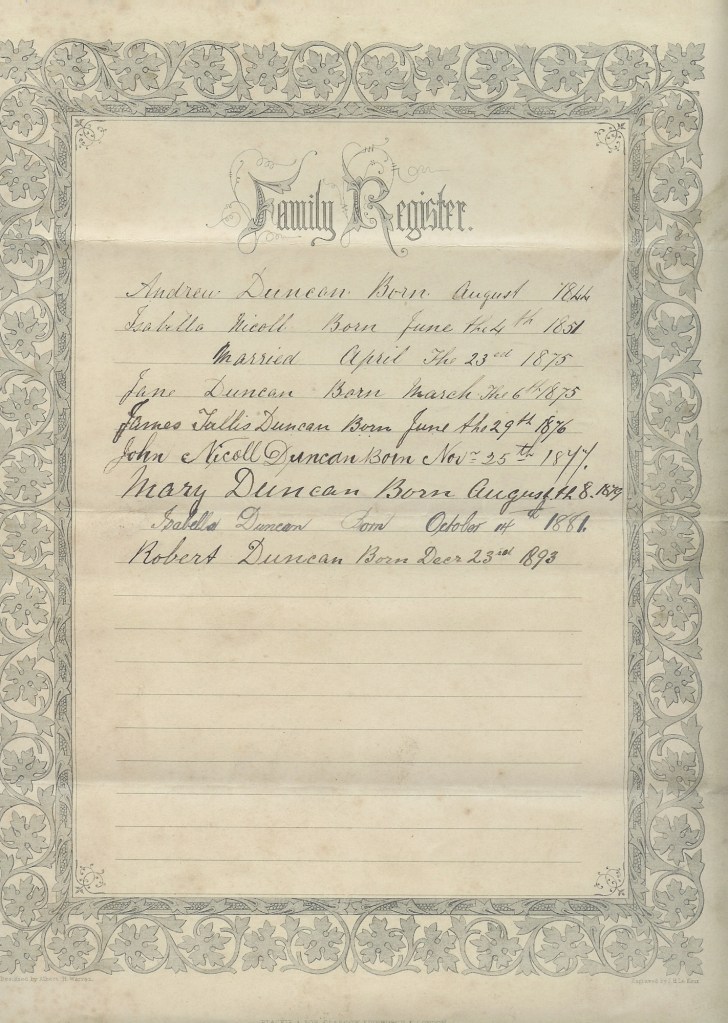 Family Register.
Andrew Duncan Born August 1844
Isabella Nicoll Born June the 4th 1851
Married April The 23rd 1875
Jane Duncan Born March The 6th 1875
James Tullis Duncan Born June the 29th 1876
John Nicoll Duncan Born Novr 25th 1877.
Mary Duncan Born August th 8. 1879
Isabella Duncan Born October 14th 1881.
Robert Duncan Born Decr 23rd 1893